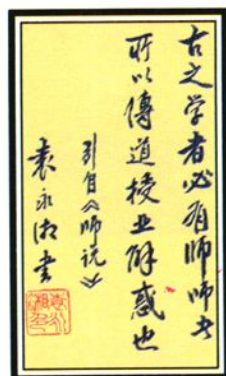 古之学者必有师师者
所以傳道授业解惑也
引自《师说》
袁永湘書